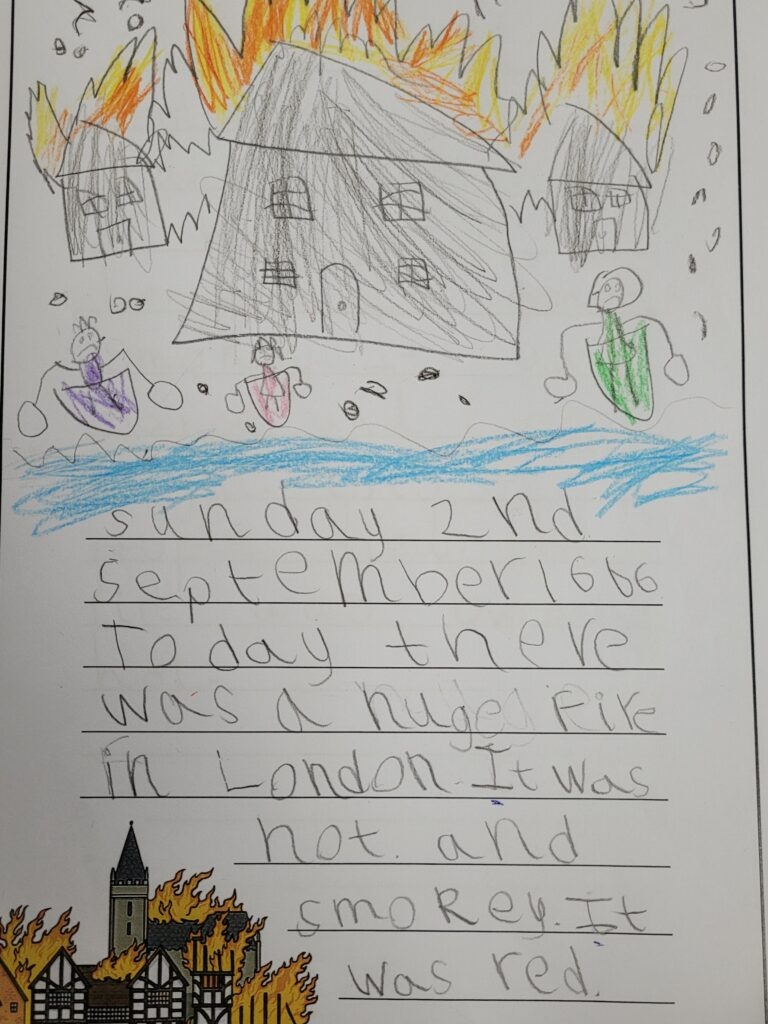 sunday 2nd
september 1666
Today there
was a huge Fire
in London. It was
hot. and
smokey. It
was red.